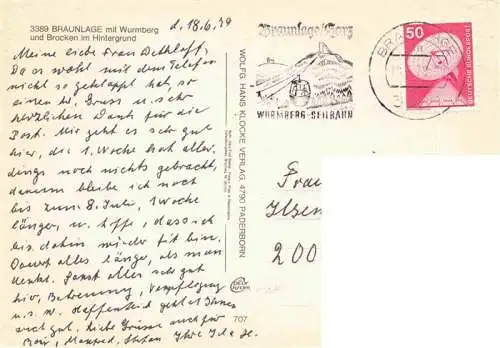 3389 BRAUNLAGE mit Wurmberg
und Brocken im Hintergrund
d. 18.6.79
Meine liebe Frau Dethloff,
Da es wohl mit dem Telefon
nicht so geklappt hat, so
einen Gruss u. sehr
herzlichen Dank für die
Post. Mir geht es sehr gut
hier, die 1. Woche hat aller
dings noch nichts gebracht,
darum bleibe ich noch
bis zum 8. Juli, 1 Woche
länger, u. hoffe, dass ich
bis dahin wieder fit bin.
Dauert alles länger, als man
denkt. Sonst alles sehr gut
hier, Betreuung, Verpflegung
u.s.w. Hoffentlich geht es Ihnen
auch gut. Liebe Grüsse auch für
Manfred, Stefan Ihre
WOLFG. HANS KLOCKE VERLAG, 4790 PADERBORN
707
Braunlage/Harz
WURMBERG-SEILBAHN
BRAUNLAGE
50
DEUTSCHE BUNDESPOST
Frau
Ilsen
200